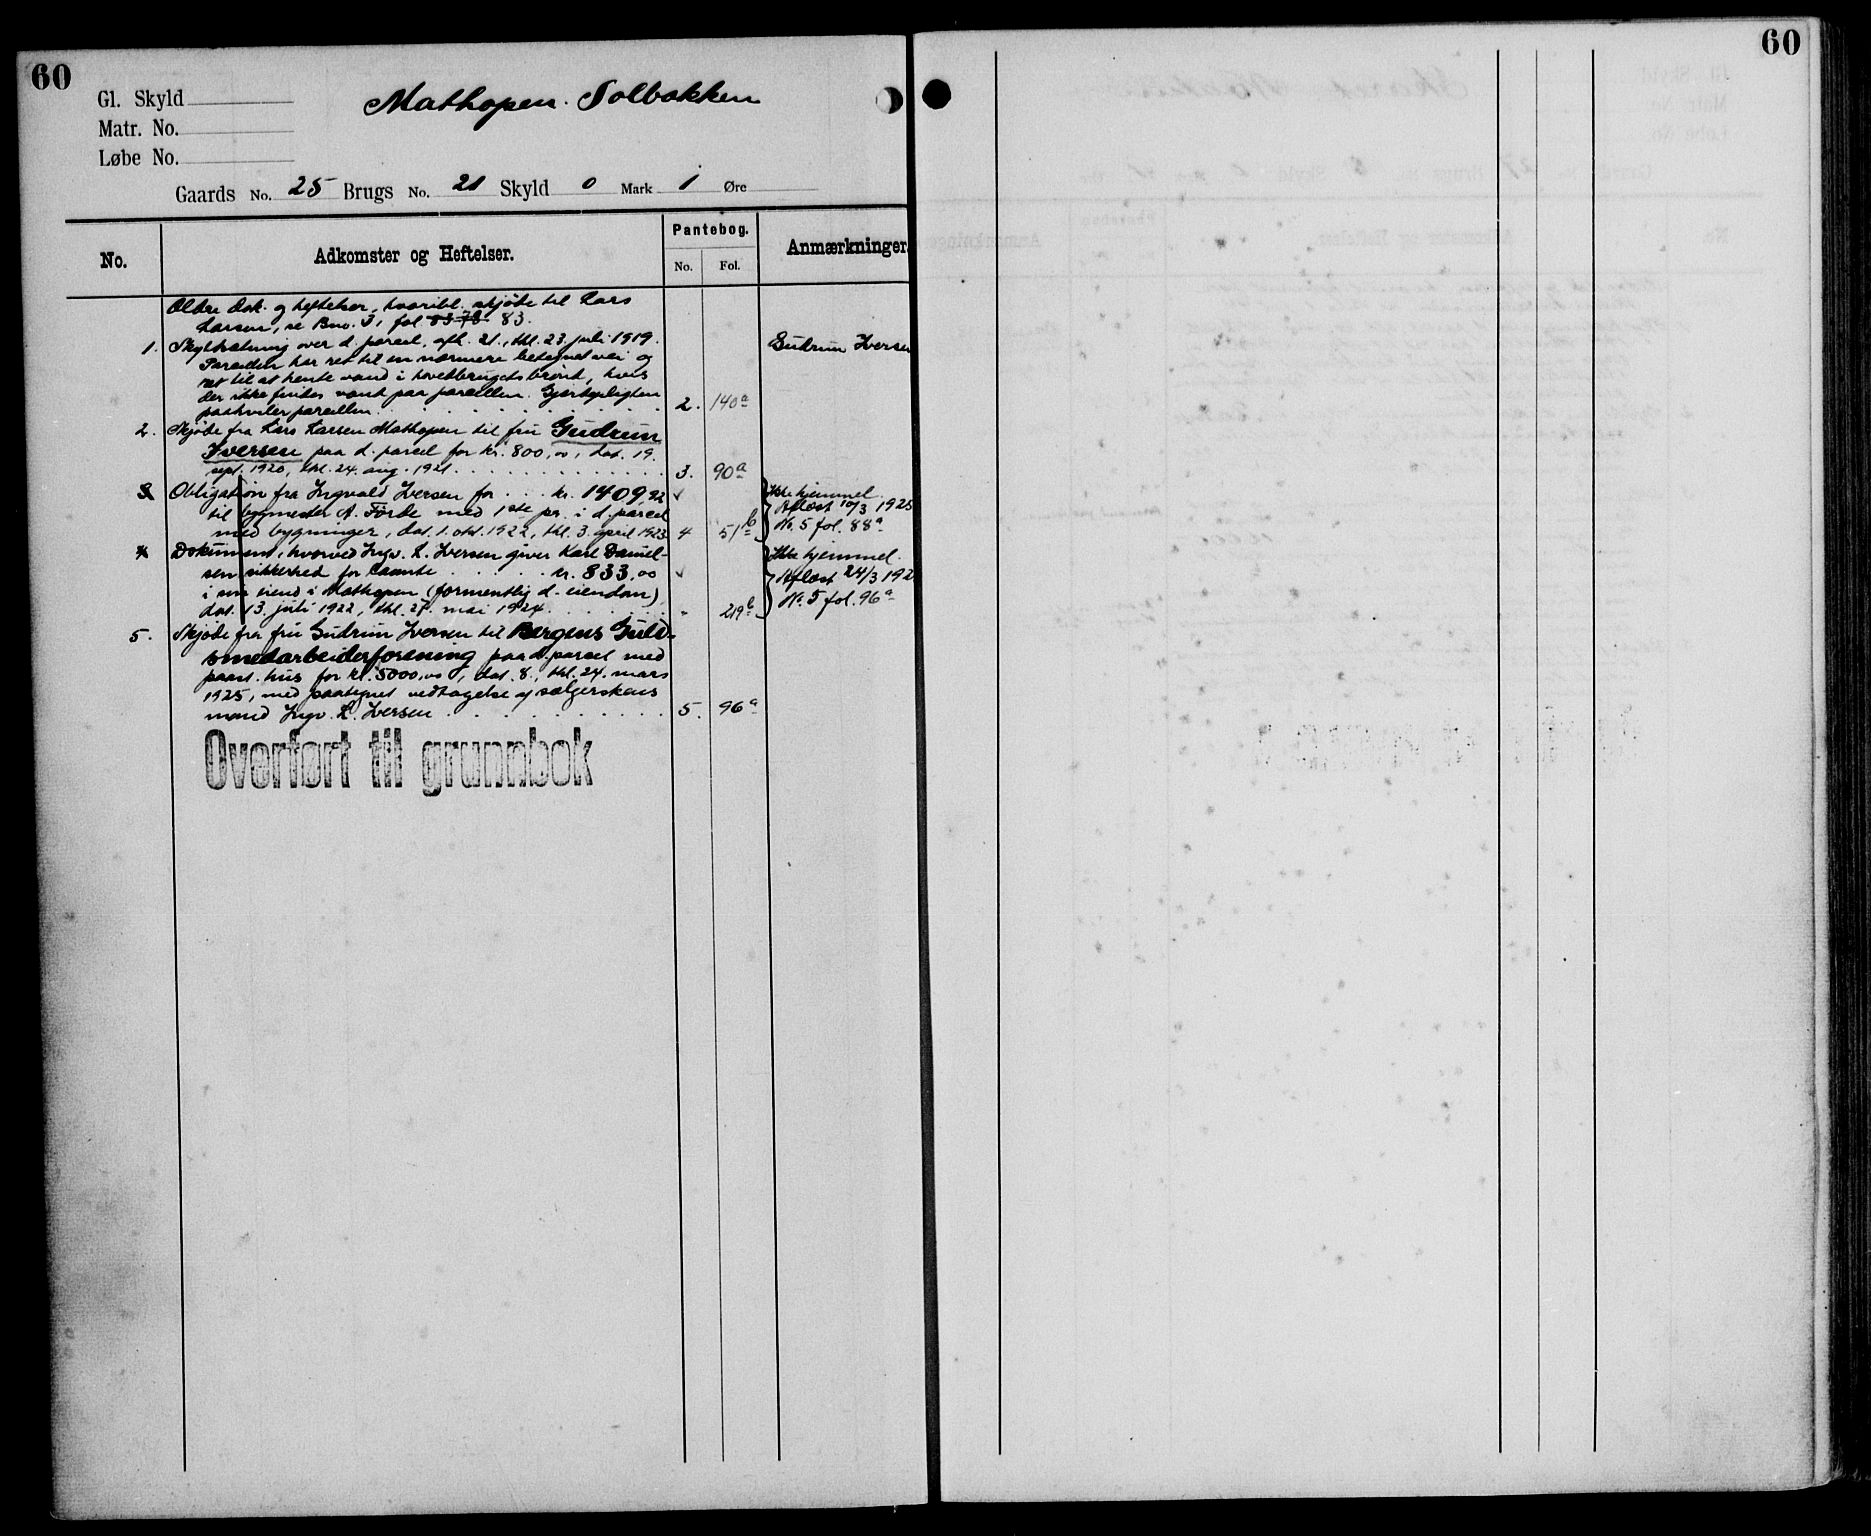 60
60
Gl. Skyld
Mathopen. Solbakken
Matr. No.
Løbe No.
Gaards No. 25 Brugs No. 21 Skyld 0 Mark 1 Øre
No.
Adkomster og Heftelser.
Pantebog.
No. Fol.
Anmærkninger.
Ældre dok. og heftelser, hvoribl. skjøte til Lars
Larsen, se Bno. 3, fol. 83 78 83.
1. Skyldsætning over d. parcel, afh. 21., thl. 23. juli 1919. Gudrun Iversen
Parcellen har ret til en nærmere betegnet vei og
ret til at hente vand i hovedbrugets brønd, hvis
der ikke findes vand paa parcellen. Gjerdepligten
paahviler parcellen. 2. 140a
2. Skjøte fra Lars Larsen Mathopen til fru Gudrun
Iversen paa d. parcel for kr. 800,00, dat. 19.
sept. 1920, thl. 24. aug. 1921. 3. 90a
3. Obligation fra Ingvald Iversen for kr. 1409,92 Ikke hjemmel.
til bygmester A. Førde med 1ste pr. i d. parcel Aflæst 10/3 1925
med bygninger, dat. 1. okt. 1922, thl. 3. april 1923 4 51b No. 5 fol. 88a
4. Dokument, hvorved Ingv. L. Iversen giver Karl Daniel- Ikke hjemmel.
sen sikkerhed for laante kr. 833,00 Aflæst 24/3 192
i sin eiend. i Mathopen (formentlig d. eiendom) No. 5 fol. 96a
dat. 13. juli 1922, thl. 27. mai 1924. - 219b
5. Skjøte fra fru Gudrun Iversen til Bergens Guld-
smedarbeiderforening paa d. parcel med
paast. hus for kr. 5000,00, dat. 8., thl. 24. mars
1925, med paategnet vedtagelse af sælgerskens
mand Ingv. L. Iversen 5. 96a
Overført til grunnbok